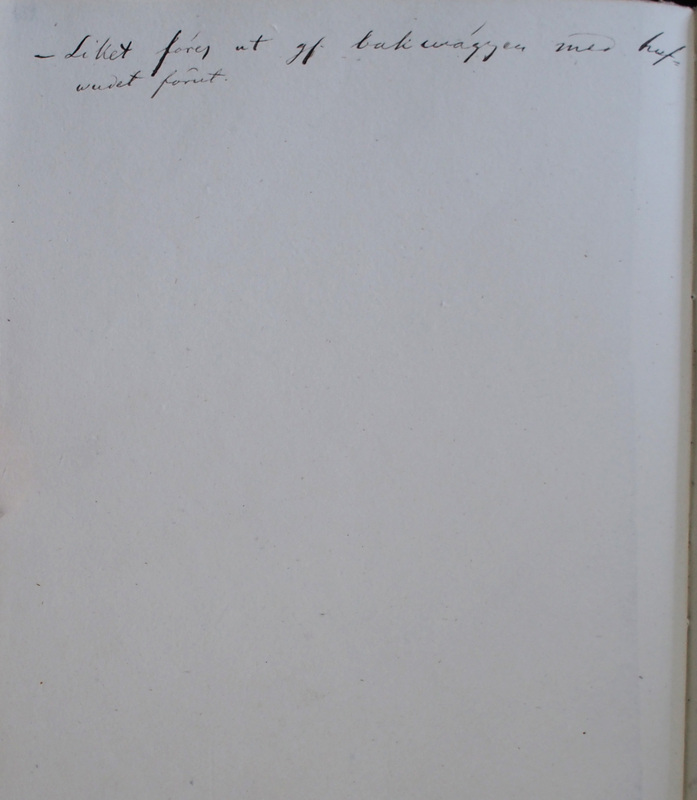 – Liket föres ut gf. bakwäggen med huf-
wudet förut.